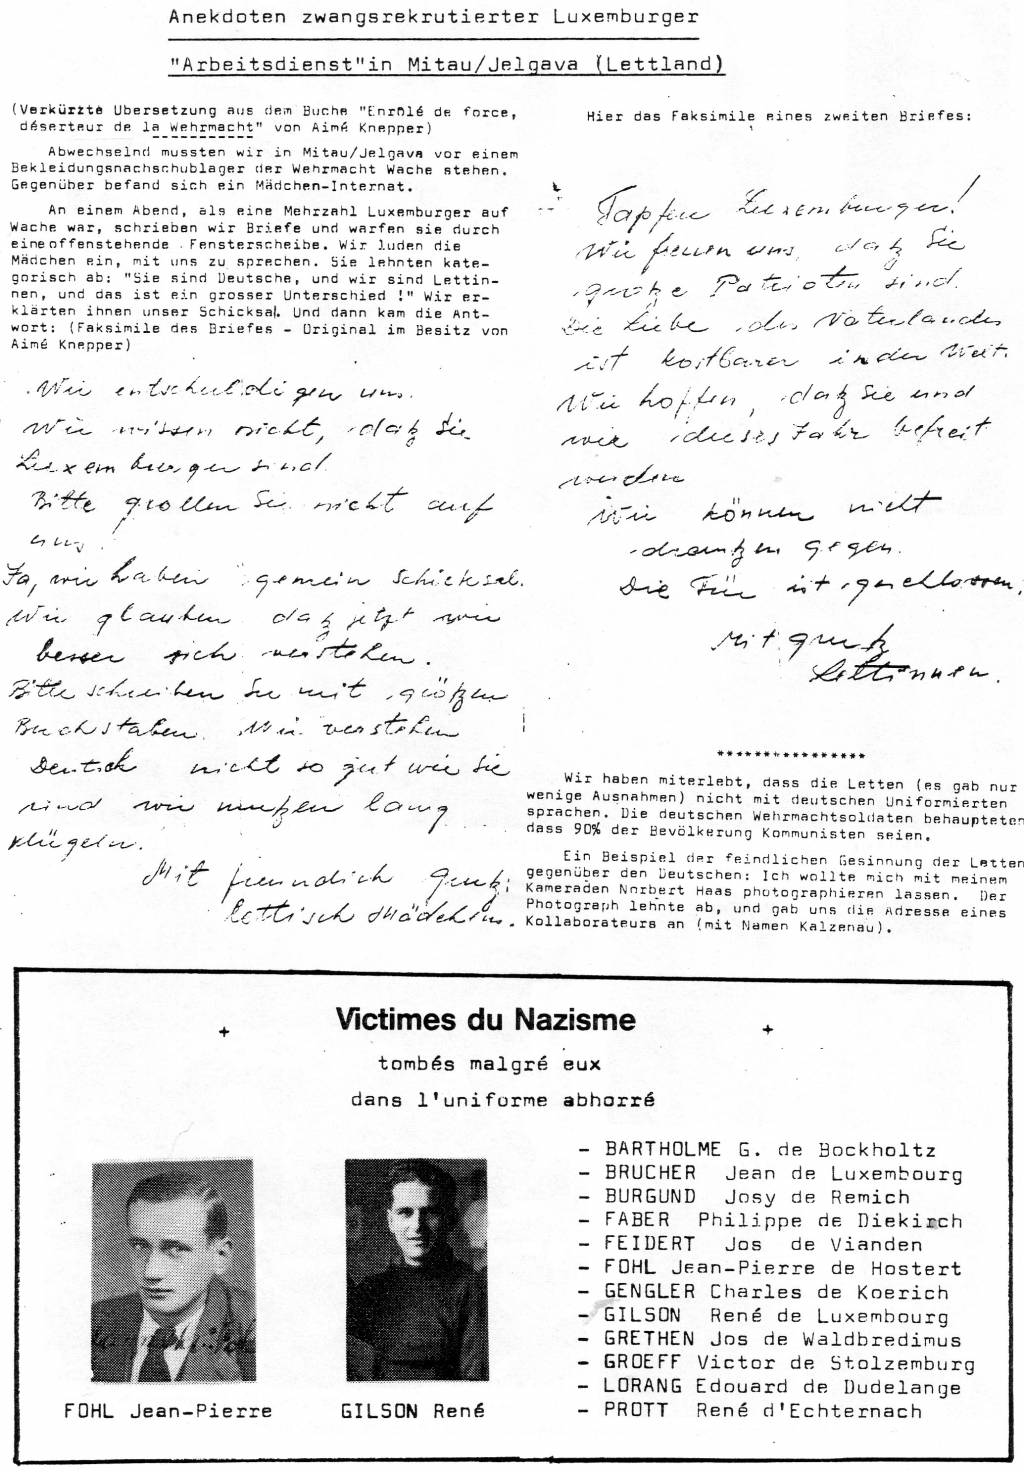 Anekdoten zwangsrekrutierter Luxemburger
"Arbeitsdienst"in Mitau/Jelgava (Lettland)
(Verkürzte Übersetzung aus dem Buche "Enrôlé de force,
déserteur de la Wehrmacht" von Aimé Knepper)
Abwechselnd mussten wir in Mitau/Jelgava vor einem
Bekleidungsnachschublager der Wehrmacht Wache stehen.
Gegenüber befand sich ein Mädchen-Internat.
An einem Abend, als eine Mehrzahl Luxemburger auf
Wache war, schrieben wir Briefe und warfen sie durch
eine offenstehende Fensterscheibe. Wir luden die
Mädchen ein, mit uns zu sprechen. Sie lehnten kate-
gorisch ab: "Sie sind Deutsche, und wir sind Lettin-
nen, und das ist ein grosser Unterschied !" Wir er-
klärten ihnen unser Schicksal. Und dann kam die Ant-
wort: (Faksimile des Briefes - Original im Besitz von
Aimé Knepper)
Wir entschuldigen uns.
Wir wissen nicht, daß Sie
Luxemburger sind.
Bitte grollen Sie nicht auf
uns!
Ja, wir haben gemein Schicksal.
Wir glauben daß jetzt wir
besser sich verstehen.
Bitte schreiben Sie mit größen
Buchstaben. Wir verstehen
Deutsch nicht so gut wie Sie
sind wir mußen lang
klügeln.
Mit freundlich Gruß:
Lettisch Mädchen.
Hier das Faksimile eines zweiten Briefes:
Tapfere Luxemburger!
Wir freuen uns, daß Sie
große Patrioten sind.
Die Liebe des Vaterlandes
ist kostbarer in der Welt.
Wir hoffen, daß Sie und
wir dieses Jahr befreit
werden
Wir können nicht
draußen gegen.
Die Tür ist geschlossen.
Mit gruß
Lettinnen.
****************
Wir haben miterlebt, dass die Letten (es gab nur
wenige Ausnahmen) nicht mit deutschen Uniformierten
sprachen. Die deutschen Wehrmachtsoldaten behaupteten
dass 90% der Bevölkerung Kommunisten seien.
Ein Beispiel der feindlichen Gesinnung der Letten
gegenüber den Deutschen: Ich wollte mich mit meinem
Kameraden Norbert Haas photographieren lassen. Der
Photograph lehnte ab, und gab uns die Adresse eines
Kollaborateurs an (mit Namen Kalzenau).
Victimes du Nazisme
tombés malgré eux
dans l'uniforme abhorré
- BARTHOLME G. de Bockholtz
- BRUCHER Jean de Luxembourg
- BURGUND Josy de Remich
- FABER Philippe de Diekirch
- FEIDERT Jos de Vianden
- FOHL Jean-Pierre de Hostert
- GENGLER Charles de Koerich
- GILSON René de Luxembourg
- GRETHEN Jos de Waldbredimus
- GROEFF Victor de Stolzemburg
- LORANG Edouard de Dudelange
- PROTT René d'Echternach
FOHL Jean-Pierre
GILSON René